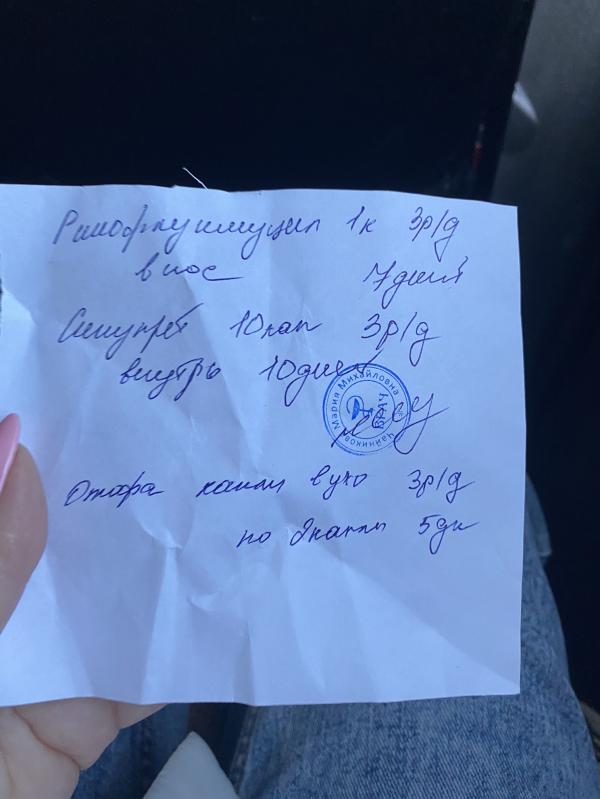 Ринофлуимуцил 1к 3р/д
в нос 7 дней
Синупрет 10 кап 3р/д
внутрь 10 дней
Чайникова Мария Михайловна
ВРАЧ
Отофа капли в ухо 3р/д
по 2 капли 5 дн